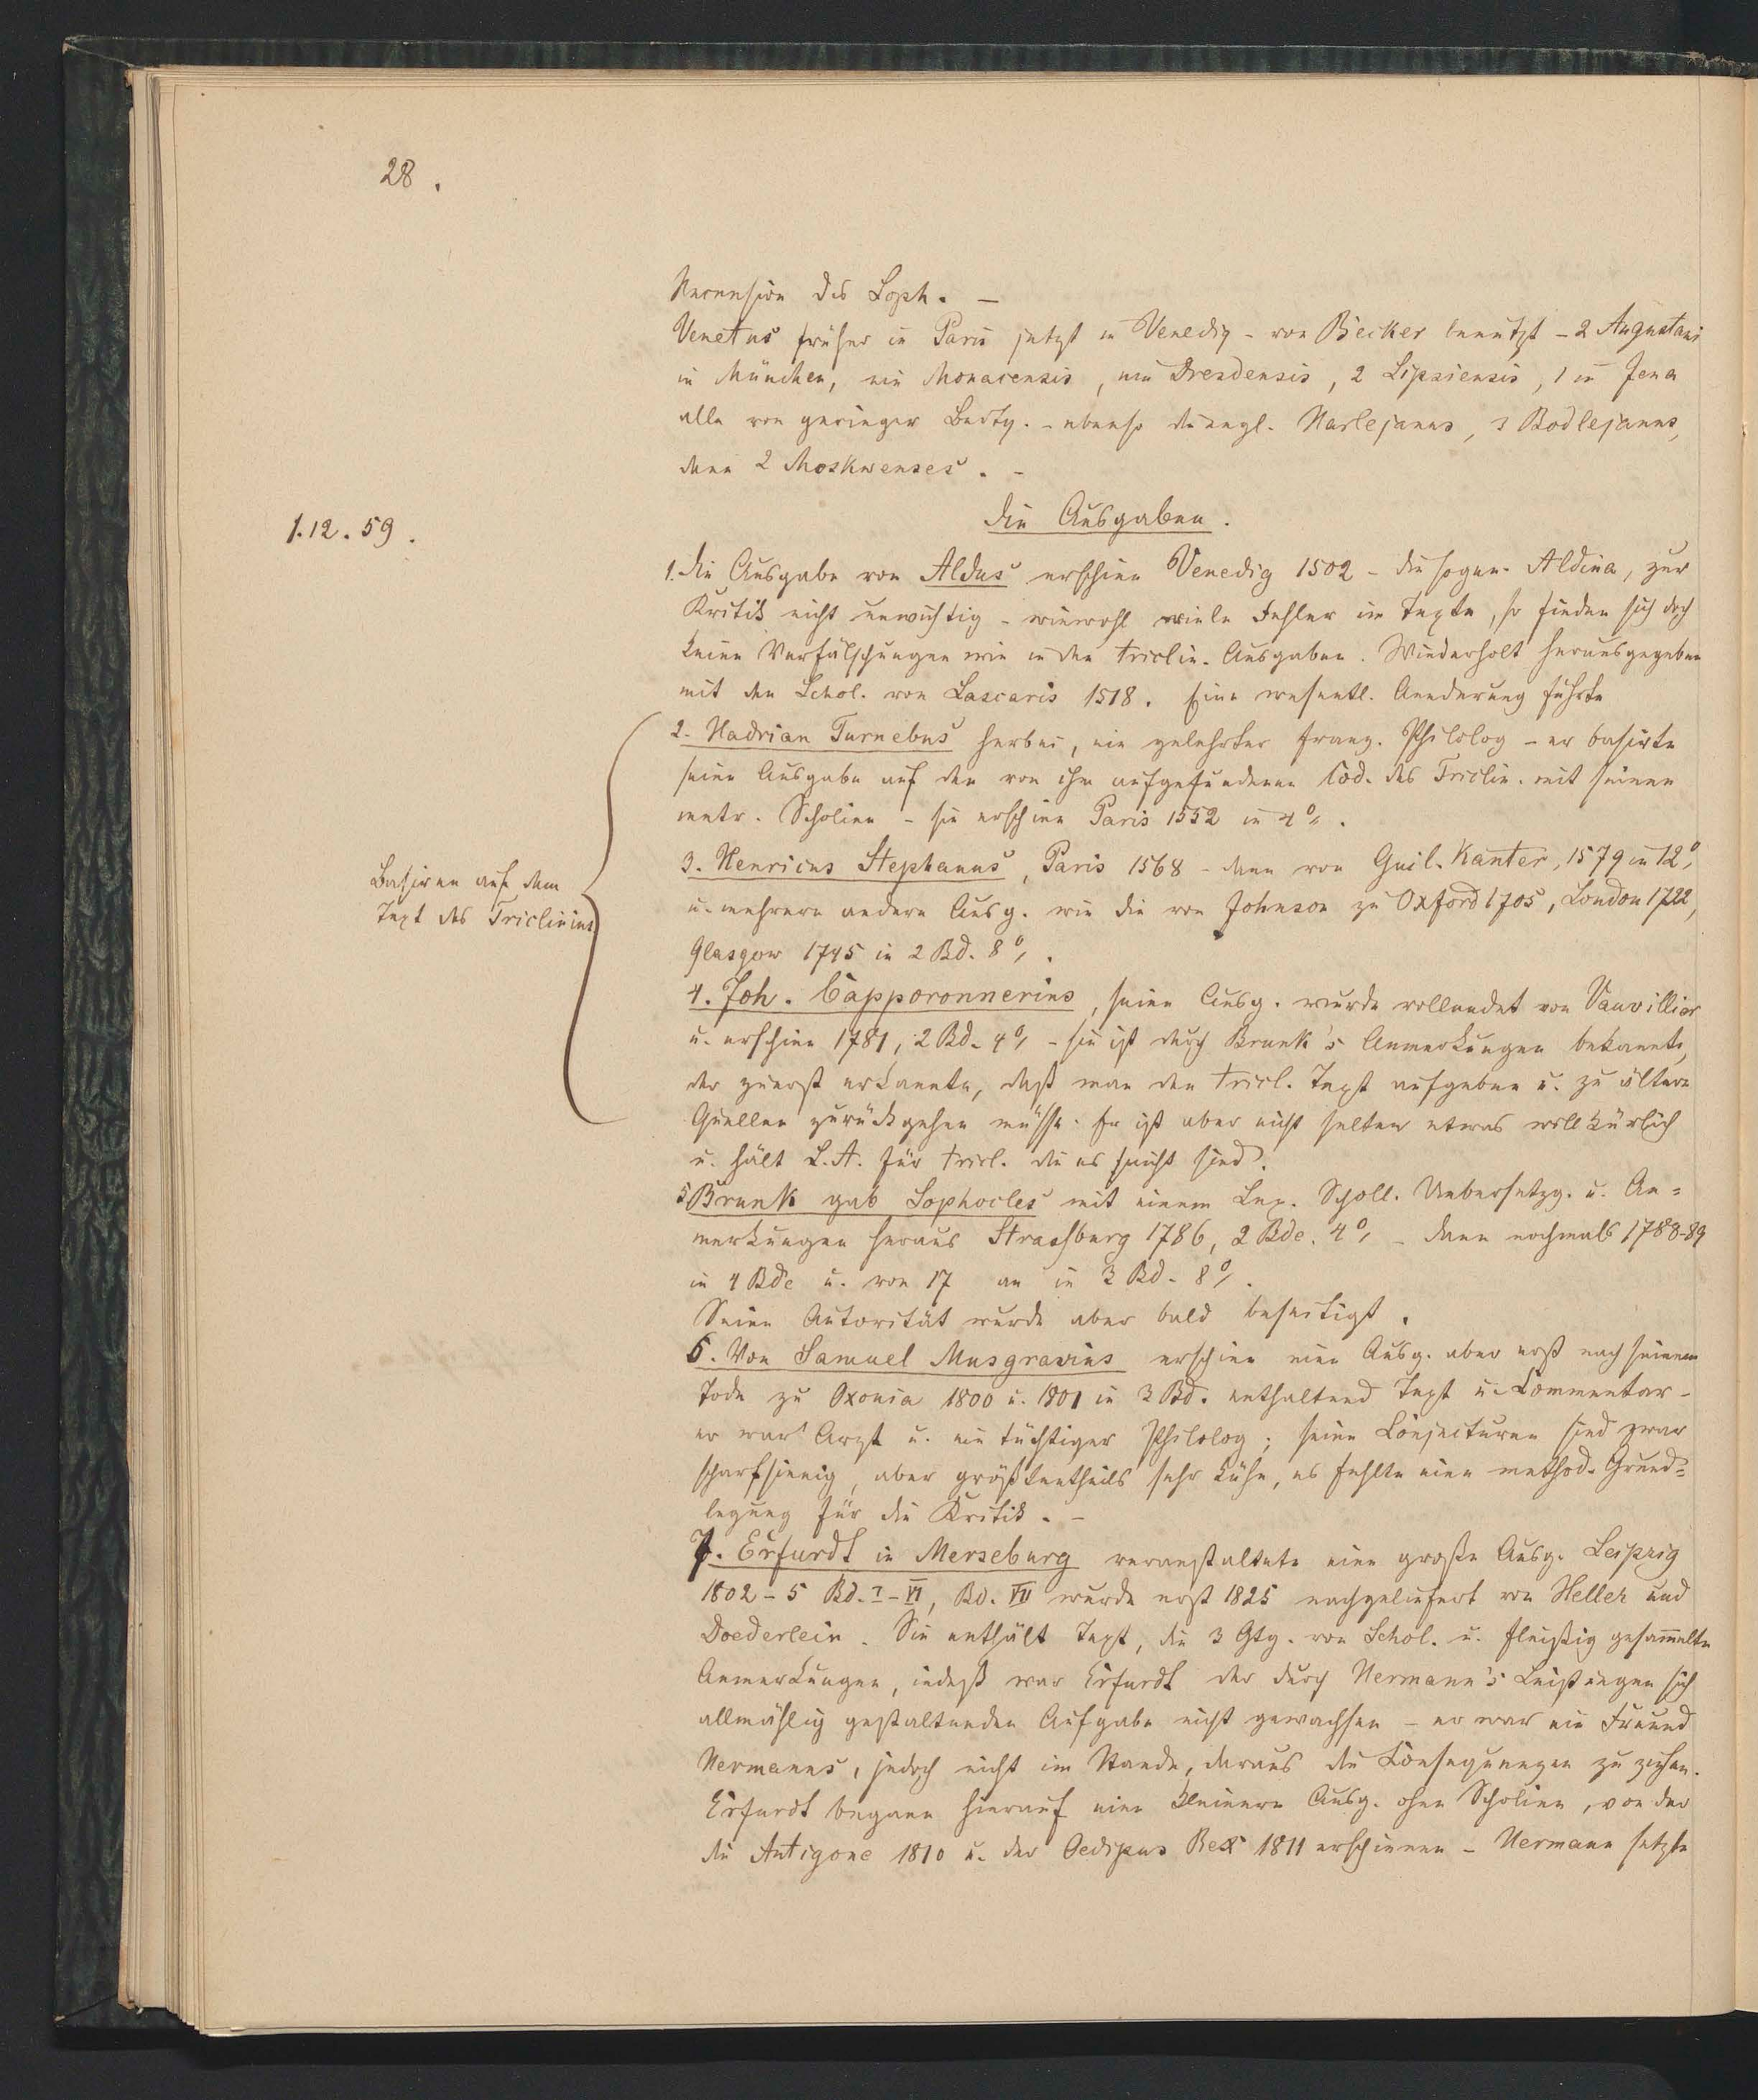 28.
Recension des Soph. –
Venetus früher in Paris jetzt in Venedig – von Becker benutzt – 2 Augustani
in München, ein Monacensis, ein Dresdensis, 2 Lipsiensis, 1 in Jena
alle von geringer Bedtg. – ebenso die engl. Harlejanus, 3 Bodlejanus,
dann 2 Moskwenses. –
Die Ausgaben.
1.12.59.
1. Die Ausgabe von Aldus erschien Venedig 1502 – die sogen. Aldina, zur
Kritik nicht unwichtig – wiewohl viele Fehler im Texte, so finden sich doch
keine Verfälschungen wie in den triclin. Ausgaben. Wiederholt herausgegeben
mit den Schol. von Lascaris 1518. Eine wesentl. Aenderung führte
2. Hadrian Turnebus herbei, ein gelehrter franz. Philolog – er basirte
seine Ausgabe auf den von ihm aufgefundenen Cod. des Triclin. mit seinen
metr. Scholien – sie erschien Paris 1552 in 4°.
3. Henricus Stephanus, Paris 1568 – dann von Guil. Kanter, 1579 in 12°,
u. mehrere andere Ausg. wie die von Johnson zu Oxford 1705, London 1722,
Glasgow 1745 in 2 Bd. 8°.
Basiren auf dem
Text des Triclinius
4. Joh. Capporonnerius, seine Ausg. wurde vollendet von Vauvillier
u. erschien 1781, 2 Bd. 4° – sie ist durch Brunk's Anmerkungen bekannt,
der zuerst erkannte, daß man den tricl. Text aufgeben u. zu ältern
Quellen zurückgehen müsse. Er ist aber nicht selten etwas willkürlich
u. hält L.A. für tricl. die es nicht sind.
5 Brunk gab Sophocles mit einem Lex. Scholl. Uebersetzg. u. An=
merkungen heraus Strassburg 1786, 2 Bde. 4° – dann nochmals 1788-89
in 4 Bde u. von 17 an in 3 Bd. 8°.
Seine Autorität wurde aber bald beseitigt.
6. Von Samuel Musgravius erschien eine Ausg. aber erst nach seinem
Tode zu Oxonia 1800 u. 1801 in 3 Bd. enthaltend Text u. Commentar –
er war Arzt u. ein tüchtiger Philolog; seine Conjecturen sind zwar
scharfsinnig, aber größtentheils sehr kühn, es fehlte eine method. Grund=
legung für die Kritik. –
7. Erfurdt in Merseburg veranstaltete eine große Ausg. Leipzig
1802–5 Bd. I–VI, Bd. VII wurde erst 1825 nachgeliefert von Heller und
Doederlein. Sie enthält Text, die 3 Gtg. von Schol. u. fleißig gesam̅elte
Anmerkungen, indeß war Erfurdt der durch Hermann's Leistungen sich
allmählig gestaltenden Aufgabe nicht gewachsen – er war ein Freund
Hermanns, jedoch nicht im Stande, daraus die Consequenzen zu ziehen.
Erfurdt begann hierauf eine kleinere Ausg. ohne Scholien, von der
die Antigone 1810 u. der Oedipus Rex 1811 erschienen – Hermann setzte